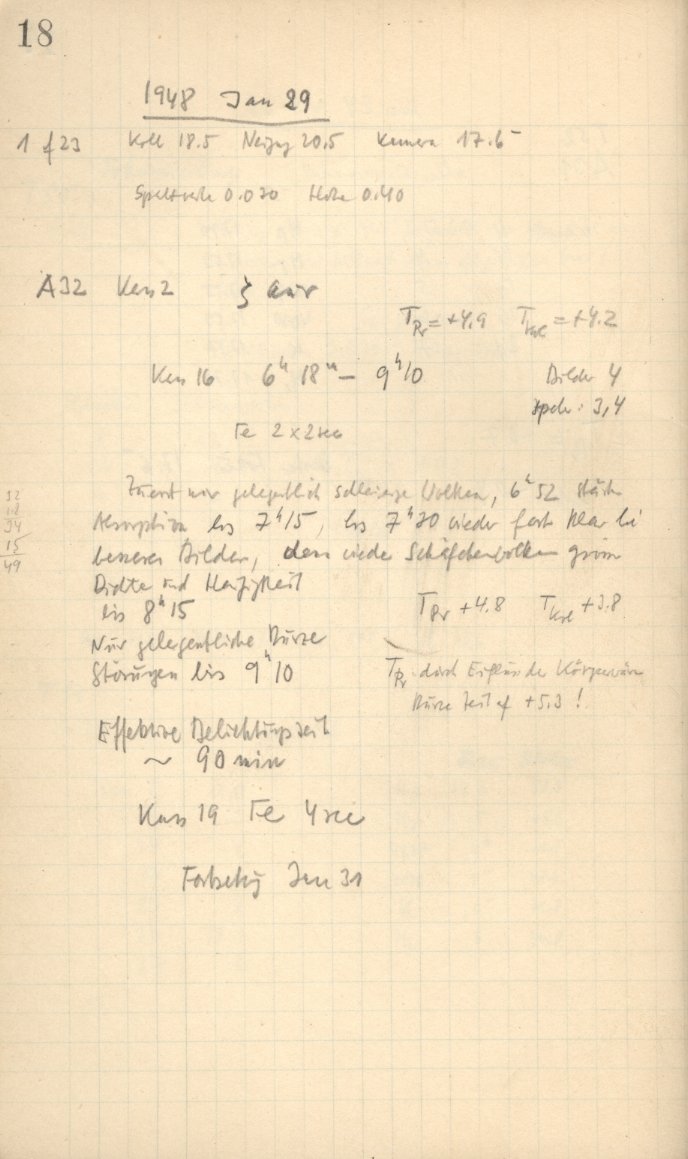 18
1948 Jan 29
1 f 23 Koll 18.5 Neigg 20.5 Kamera 17.6
Spaltweite 0.030 Höhe 0.40
A32 Kass 2 ζ Aur
T Pr = +4.9 T = +4.2
Kass 16 6h 18m – 9h10 Bilder 4
3,4
Fe 2 x 2 sec
Zuerst nur gelegentlich Wolken, 6h52 starke
32
18
34
15
49
Absorption bis 7h15, bis 7h30 wieder fast klar bei
besseren Bildern, dann wieder Schäfchenwolken
Dichte und Häufigkeit
bis 8h15 T Pr +4.8 +3.8
Nur gelegentliche kurze
Störungen bis 9h10
T Pr durch Einfluss der Körperwärme
kurze Zeit auf +5.3!
Effektive Belichtungszeit
~ 90 min
Kass 19 Fe 4 sec
Fortsetzg Jan 31